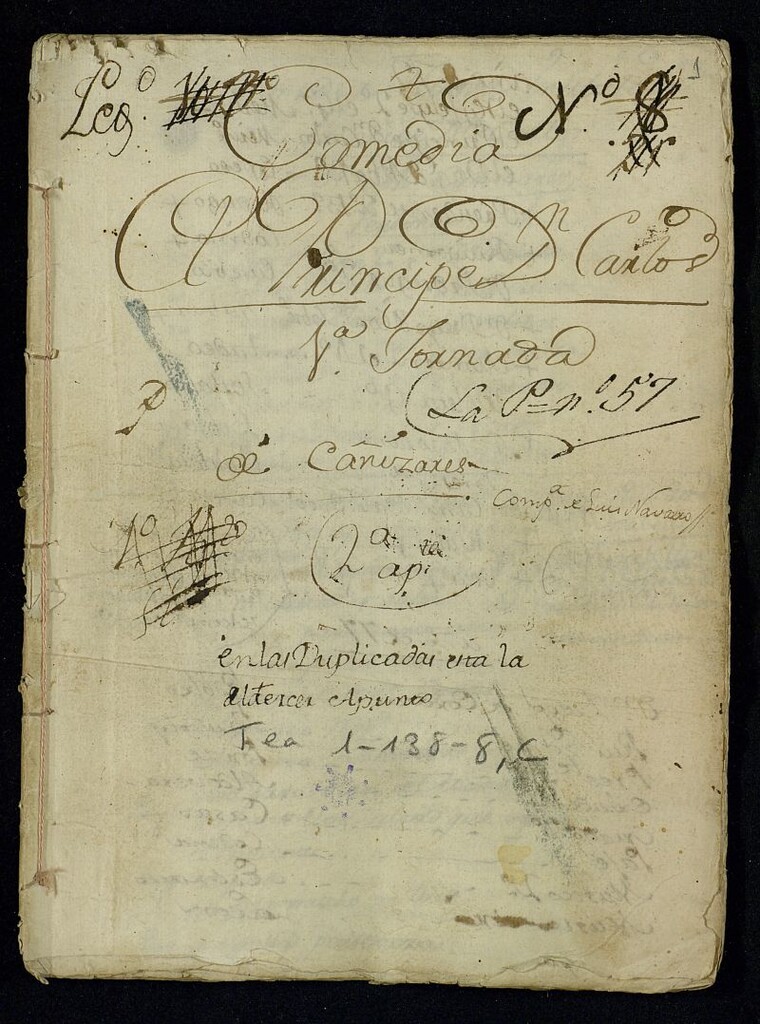 Leg.º Nº 8
1
Comedia
El Principe Dn Carlos
1ª Jornada
La P= n.º 57
P
de Cañizares
Compª de Luis Navarro
2ª
ap.te
en las Duplicadas esta la
del tercer Apunto
Tea 1-138-8, C